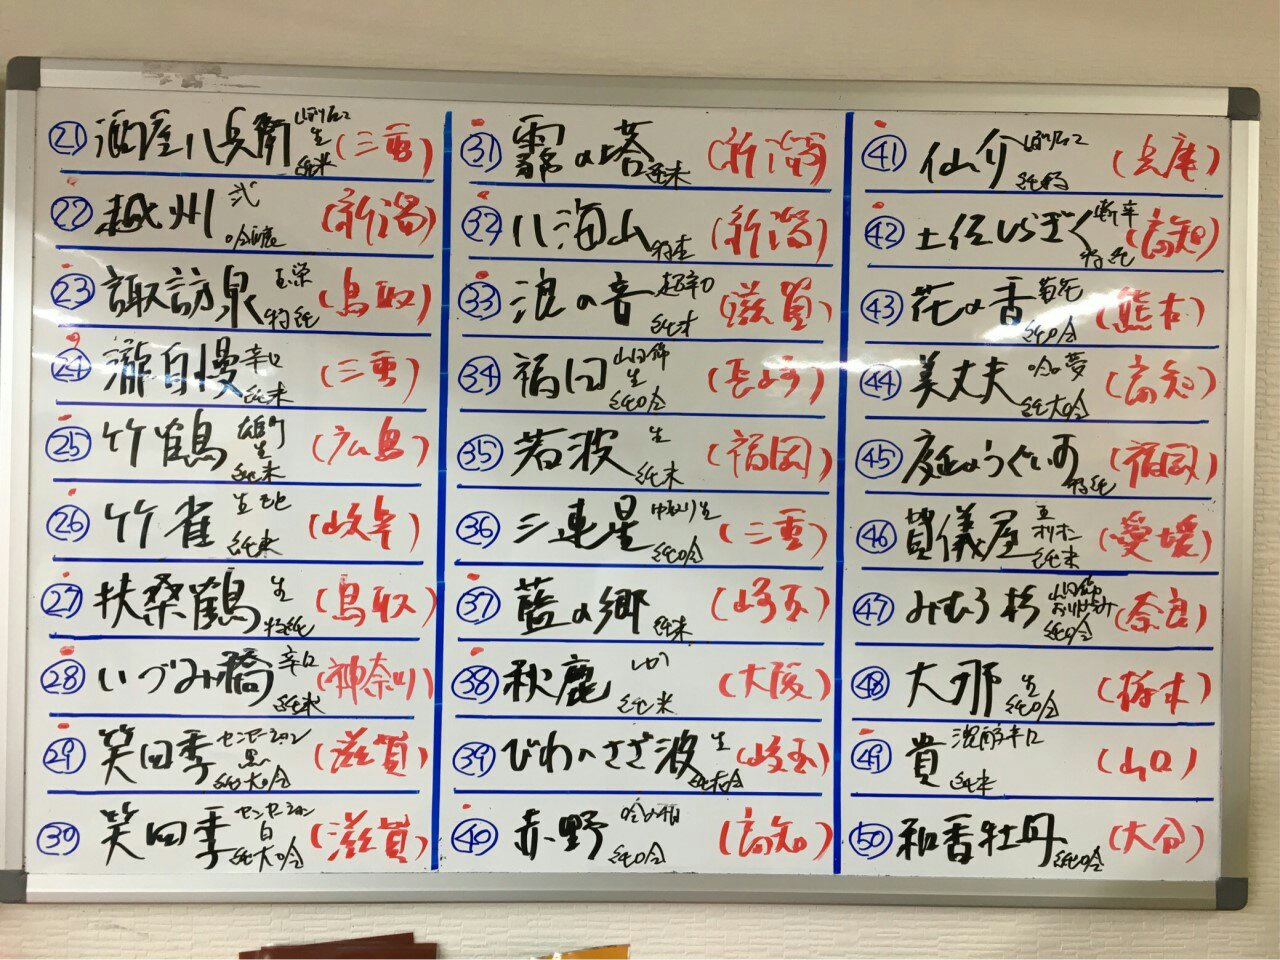 ㉑ 酒屋八兵衛 山廃 生 純米 (三重)
㉒ 越州 弐 吟醸 (新潟)
㉓ 諏訪泉 玉栄 特純 (鳥取)
㉔ 瀧自慢 辛口 純米 (三重)
㉕ 竹鶴 雄町 生 純米 (広島)
㉖ 竹雀 生 純米 (岐阜)
㉗ 扶桑鶴 生 特純 (鳥取)
㉘ いづみ橋 辛口 純米 (神奈川)
㉙ 笑四季 センセーション 黒 純大吟 (滋賀)
㉚ 笑四季 センセーション 白 純大吟 (滋賀)
㉛ 霧の塔 純米 (新潟)
㉜ 八海山 特本 (新潟)
㉝ 浪の音 超辛口 純米 (滋賀)
㉞ 福田 山田錦 生 純吟 (長崎)
㉟ 若波 生 純米 (福岡)
㊱ 三連星 生 純吟 (三重)
㊲ 藍の郷 純米 (埼玉)
㊳ 秋鹿 純米 (大阪)
㊴ びわのさざ波 生 純大吟 (埼玉)
㊵ 赤野 吟の夢 純吟 (高知)
㊶ 仙介 純 (兵庫)
㊷ 土佐しらぎく 斬辛 特純 (高知)
㊸ 花の香 菊花 純吟 (熊本)
㊹ 美丈夫 吟の夢 純大吟 (高知)
㊺ 庭のうぐいす 特純 (福岡)
㊻ 賀儀屋 純米 (愛媛)
㊼ みむろ杉 山田錦 おりがらみ 純吟 (奈良)
㊽ 大那 生 純吟 (栃木)
㊾ 貴 濃醇辛口 純米 (山口)
㊿ 和香牡丹 純吟 (大分)